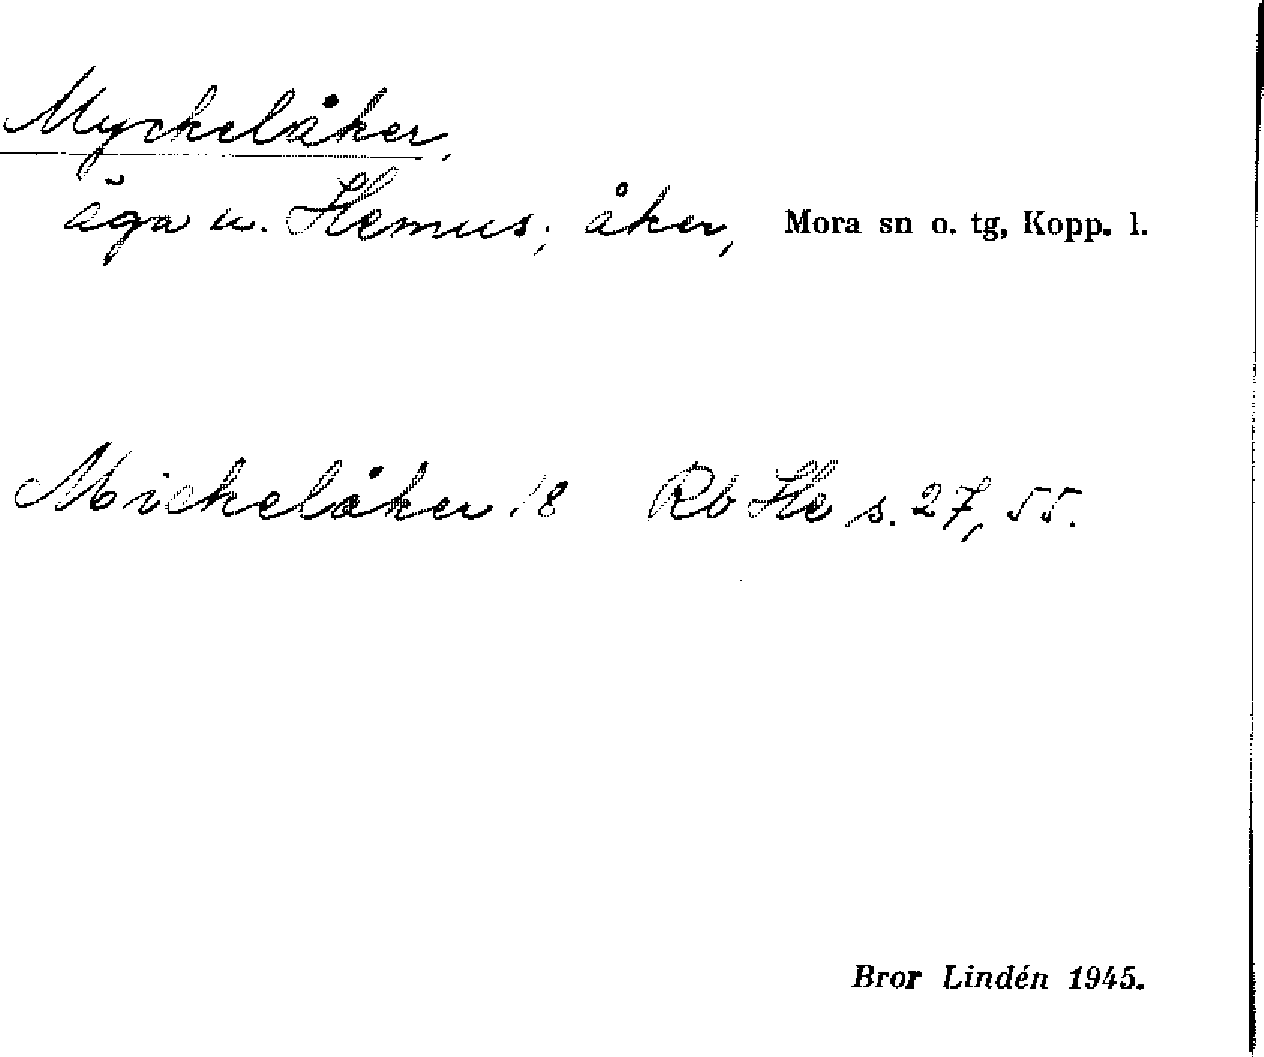 Myckelåker,
äga u. Hemus, åker, Mora sn o. tg, Kopp. l.
Mickelåker 18 Rb He s. 27, 55.
Bror Lindén 1945.